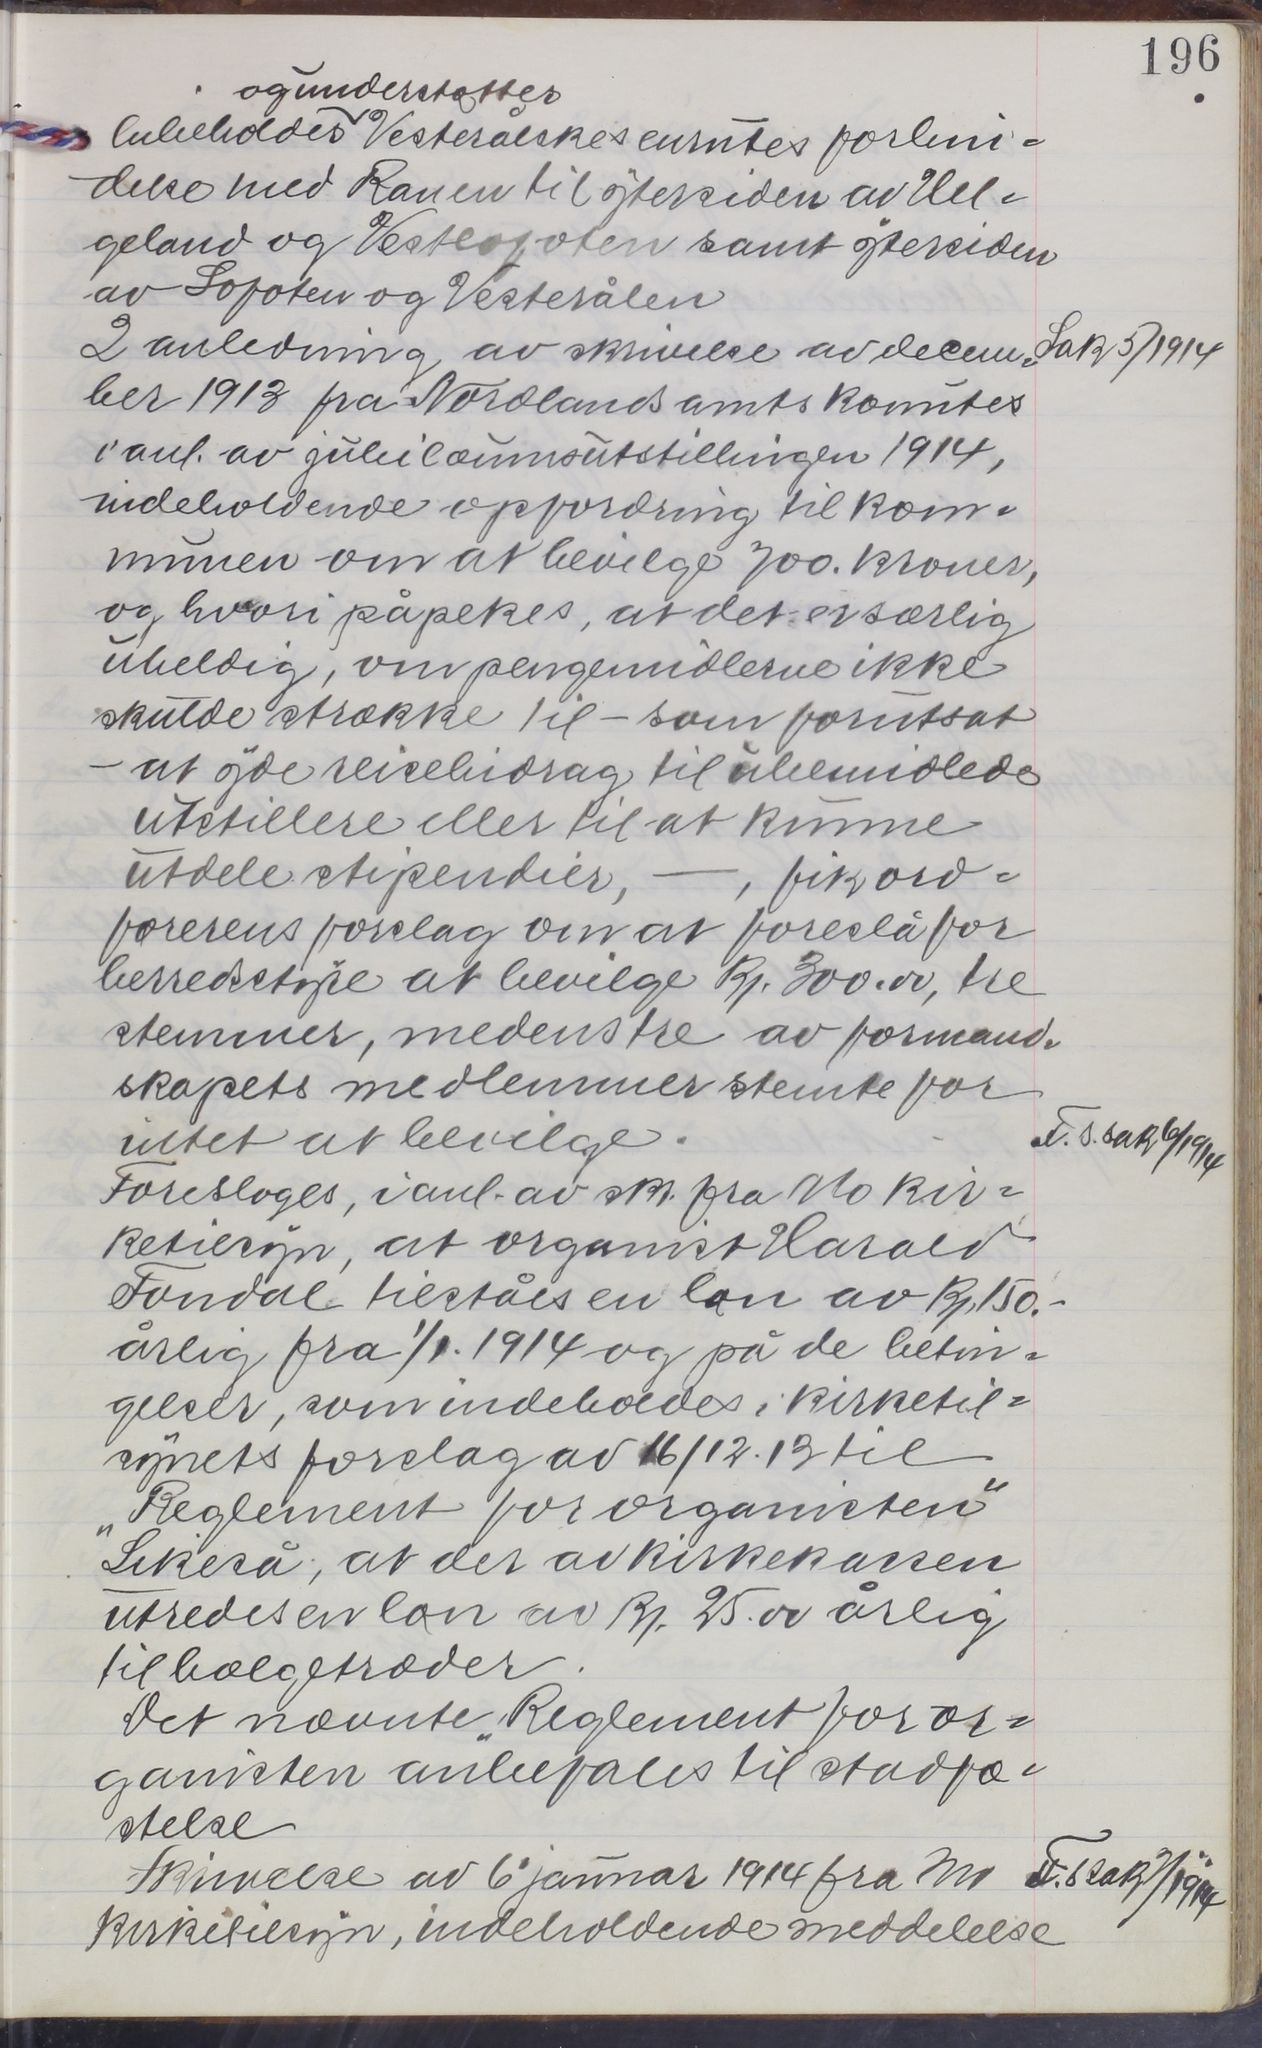 196
og understøtter
bibeholdes Vesterålskes enrutes forbin-
delse med Ranen til ytersiden av Hel-
geland og Vestlofoten samt ytersiden
av Lofoten og Vesterålen
I anledning av skrivelse av decem- Sak 5/1914
ber 1913 fra Nordlands amts komites
i anl. av jubilæumsutstillingen 1914,
indeholdende opfordring til kom-
munen om at bevilge 300. kroner,
og hvori påpekes, at det er særlig
uheldig, om pengemidlerne ikke
skulde strække til – som forutsat
– at yde reisebidrag til ubemidlede
utstillere eller til at kunne
utdele stipendier, — , fik ord-
førerens forslag om at foreslå for
herredstyre at bevilge Kr. 300.00, tre
stemmer, medens tre av formand-
skapets medlemmer stemte for
intet at bevilge.
F. s. sak 6/1914
Foresloges, i anl. av skr. fra Mo kir-
ketilsyn, at organist Harald
Fondal tilståes en løn av Kr. 150.-
årlig fra 1/1. 1914 og på de betin-
gelser, som indeholdes i kirketil-
synets forslag av 16/12.13 til
„Reglement for organisten“
Likeså, at der av kirkekassen
utredes en løn av Kr. 25.00 årlig
til bælgetræder.
Det nævnte „Reglement for or-
ganisten anbefales til stadfæ-
stelse
Skrivelse av 6 januar 1914 fra Mo F. s sak 7/1914
kirketilsyn, indeholdende meddelelse